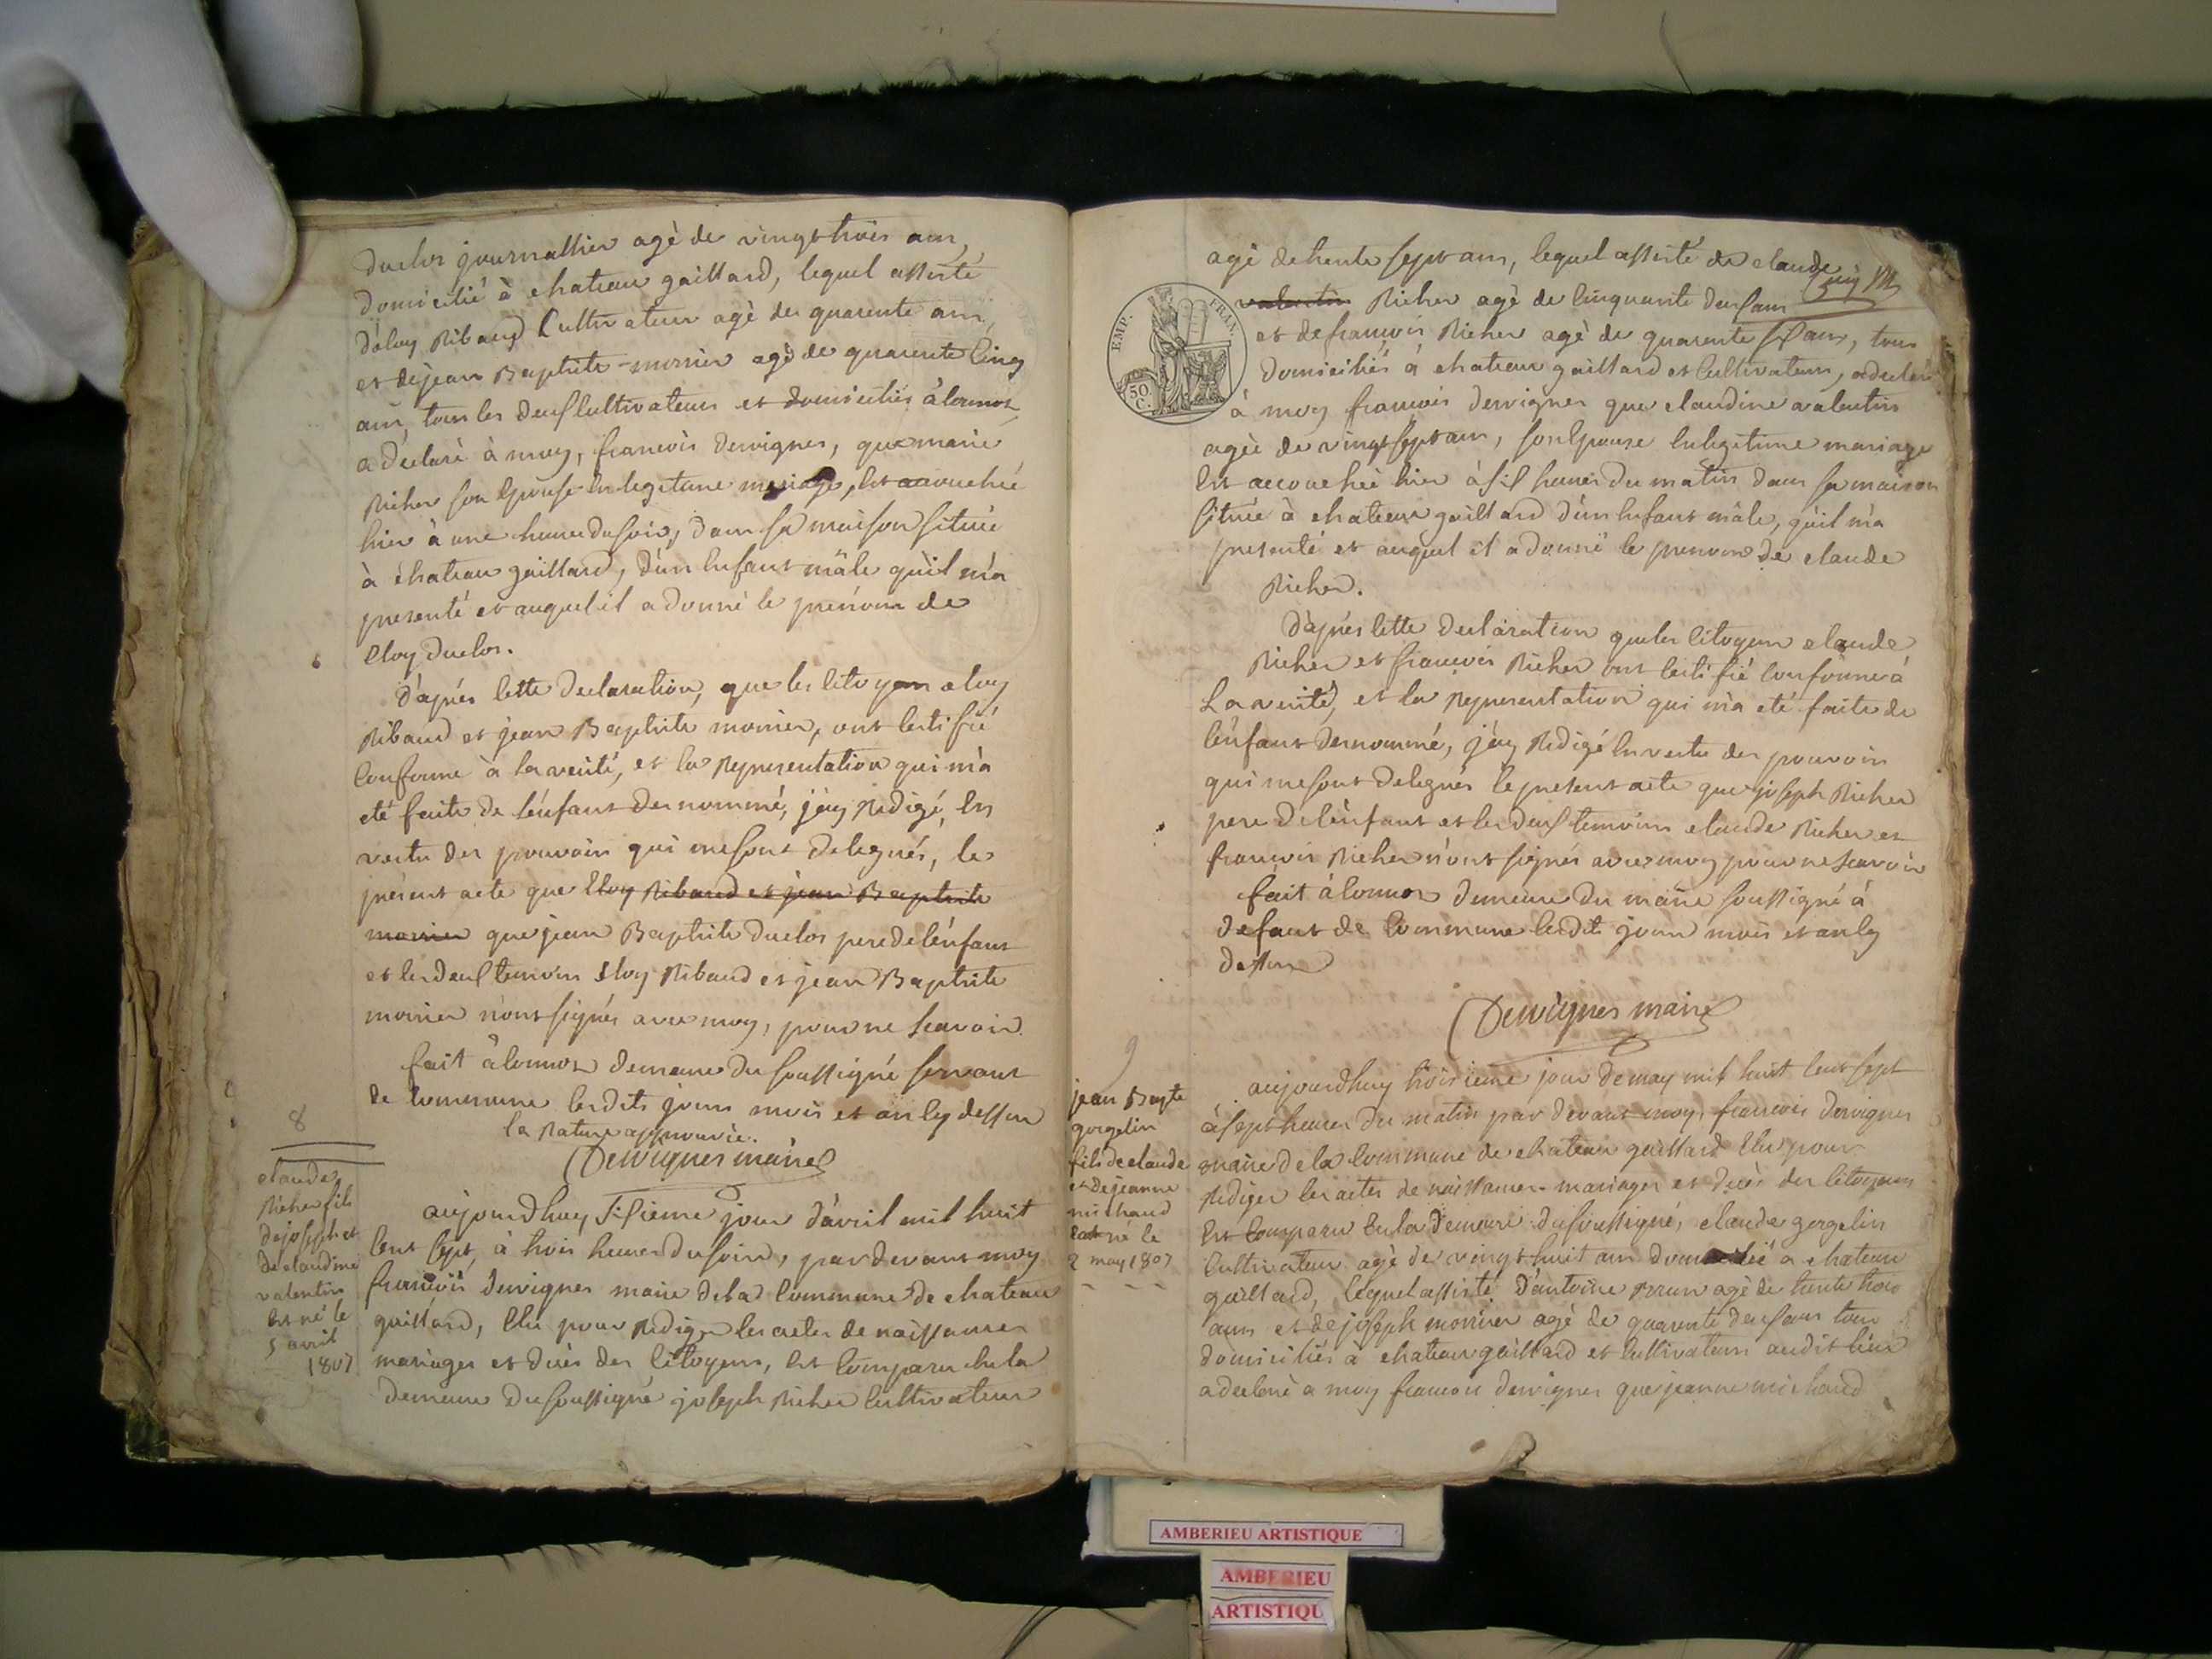 duclos journallier agè de vingt trois ans,
domicilié à chateau gaillard, lequel assisté
d'eloy Ribaud Cultivateur agè de quarente ans,
et de jean Baptiste monier agè de quarente cinq
ans, tous les deux cultivateurs et domiciliés à
a déclaré à moy, francois Dervignes, que marie
Richer son Epouse En legitime mariage, Est accouchée
hier à une heure du soir, dans sa maison située
à chateau gaillard, d'un Enfant mâle qu'il m'a
presenté et auquel il a donné le prénom de
Eloy duclos.
d'aprés cette declaration, que les citoyens eloy
Ribaud et jean Baptiste monier, ont certifié
conforme à la verité, et la Representation qui m'a
eté faite de l'énfant denommé, j'ay Redigé, En
vertu des pouvoirs qui me sont delegués, le
présent acte que Eloy Ribaud et jean Baptiste
monier que jean Baptiste duclos pere de l'énfant
et les deux temoins Eloy Ribaud et jean Baptiste
monier n'ont signés avec moy, pour ne scavoir.
fait à demeure du soussigné servant
de commune lesdits jours mois et an cy dessus
la Rature approuvée.
Dervignes maire
8
claude
Richer fils
de joseph et
de claudine
valentin
Est né le
5 avril
1807
aujourdhuy Sixieme jour d'avril mil huit
cent sept, à trois heures du soir, par devant moy
francois Dervignes maire de la commune de chateau
gaillard, Elu pour Rediger les actes de naissances
mariages et decés des citoyens, Est comparu En la
demeure du soussigné joseph Richer cultivateur
EMP. FRAN.
50 C.
agè de trente sept ans, lequel assisté de claude
valentin Richer agè de cinquante deux ans
et de francois Richer agè de quarente six ans, tous
domiciliés à chateau gaillard et cultivateurs, a declaré
à moy francois dervignes que claudine valentin
agée de vingt sept ans, son Epouse En legitime mariage
Est accouchée hier à six heures du matin dans sa maison
située à chateau gaillard d'un Enfant mâle, qu'il m'a
presenté et auquel il a donné le prenom de claude
Richer.
d'aprés cette declaration que les citoyens claude
Richer et francois Richer ont certifié conforme à
La verité, et la Representation qui m'a eté faite de
l'énfant denommé, j'ay Redigé En vertu des pouvoirs
qui me sont delegués le present acte que joseph Richer
pere de l'énfant et les deux temoins claude Richer et
francois Richer n'ont signés avec moy pour ne scavoir
fait à demeure du maire soussigné à
defaut de commune lesdits jour mois et an cy
dessus
Dervignes maire
9
jean Bapte
gorgelin
fils de claude
et de jeanne
michaud
Est né le
2 may 1807
aujourdhuy troisieme jour de may mil huit cent sept
à sept heures du matin par devant moy, francois Dervignes
maire de la commune de chateau gaillard Elu pour
Rediger les actes de naissances mariages et decès des citoyens
Est comparu En la demeure du soussigné, claude gorgelin
Cultivateur agè de vingt huit ans domicilié a chateau
gaillard, lequel assisté d'antoine Brun agè de trente trois
ans et de joseph monier agè de quarente deux ans tous
domiciliés à chateau gaillard et cultivateurs audit lieu
a declaré a moy francois dervignes que jeanne michaud
AMBERIEU ARTISTIQUE
AMBERIEU
ARTISTIQU